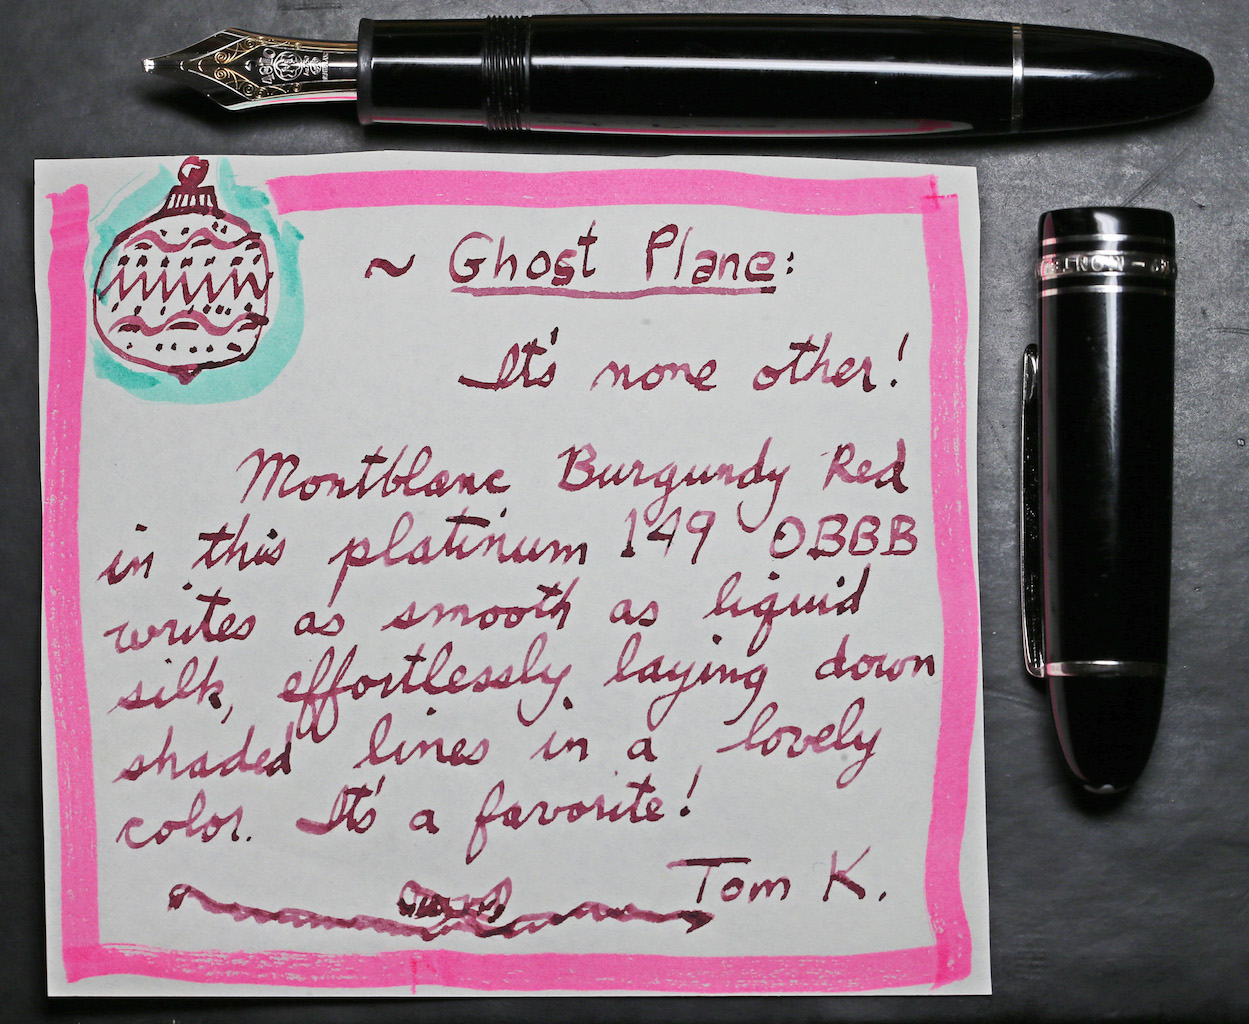 ~ Ghost Plane:
It's none other!
Montblanc Burgundy Red
in this platinum 149 OBBB
writes as smooth as liquid
silk, effortlessly laying down
shaded lines in a lovely
color. It's a favorite!
Tom K.